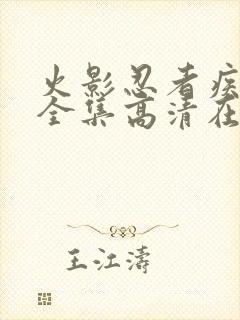 火影忍者疾
全集高清在
王江涛